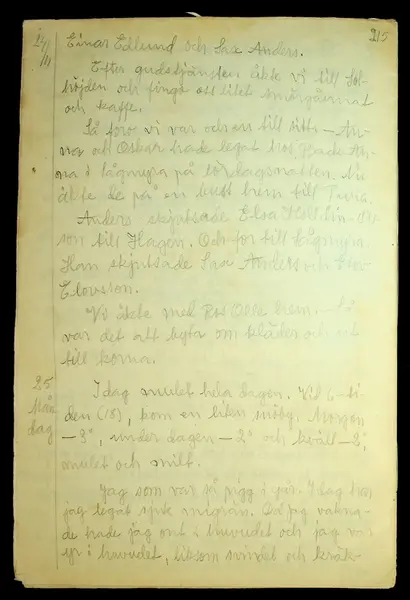 215
24/11
Einar Edlund och Sara Anders.
Efter gudstjänsten åkte vi till Sol-
höjden och fingo ett litet smörgåsmat
och kaffe.
Så foro vi var och en till sitt. – An-
na och Oskar hade legat hos
na i Lågmyra på lördagsnatten. Nu
åkte de på en buss hem till Tuna.
Anders skjutsade Elsa
son till Hagen. Och for till Lågmyra.
Han skjutsade Sara Anders och
Elovsson.
Vi åkte med Olle hem. – Så
var det att byta om kläder och ut
till korna.
25
Mån
dag
Idag mulet hela dagen. Vid 6-ti-
den (18), kom en liten snöby. Morgon
–3°, under dagen –2° och kväll –2°,
mulet och milt.
Jag som var så pigg i går. Idag har
jag legat sjuk migrän. Då jag vakna-
de hade jag ont i huvudet och jag var
yr i huvudet, liksom svindel och kräk-